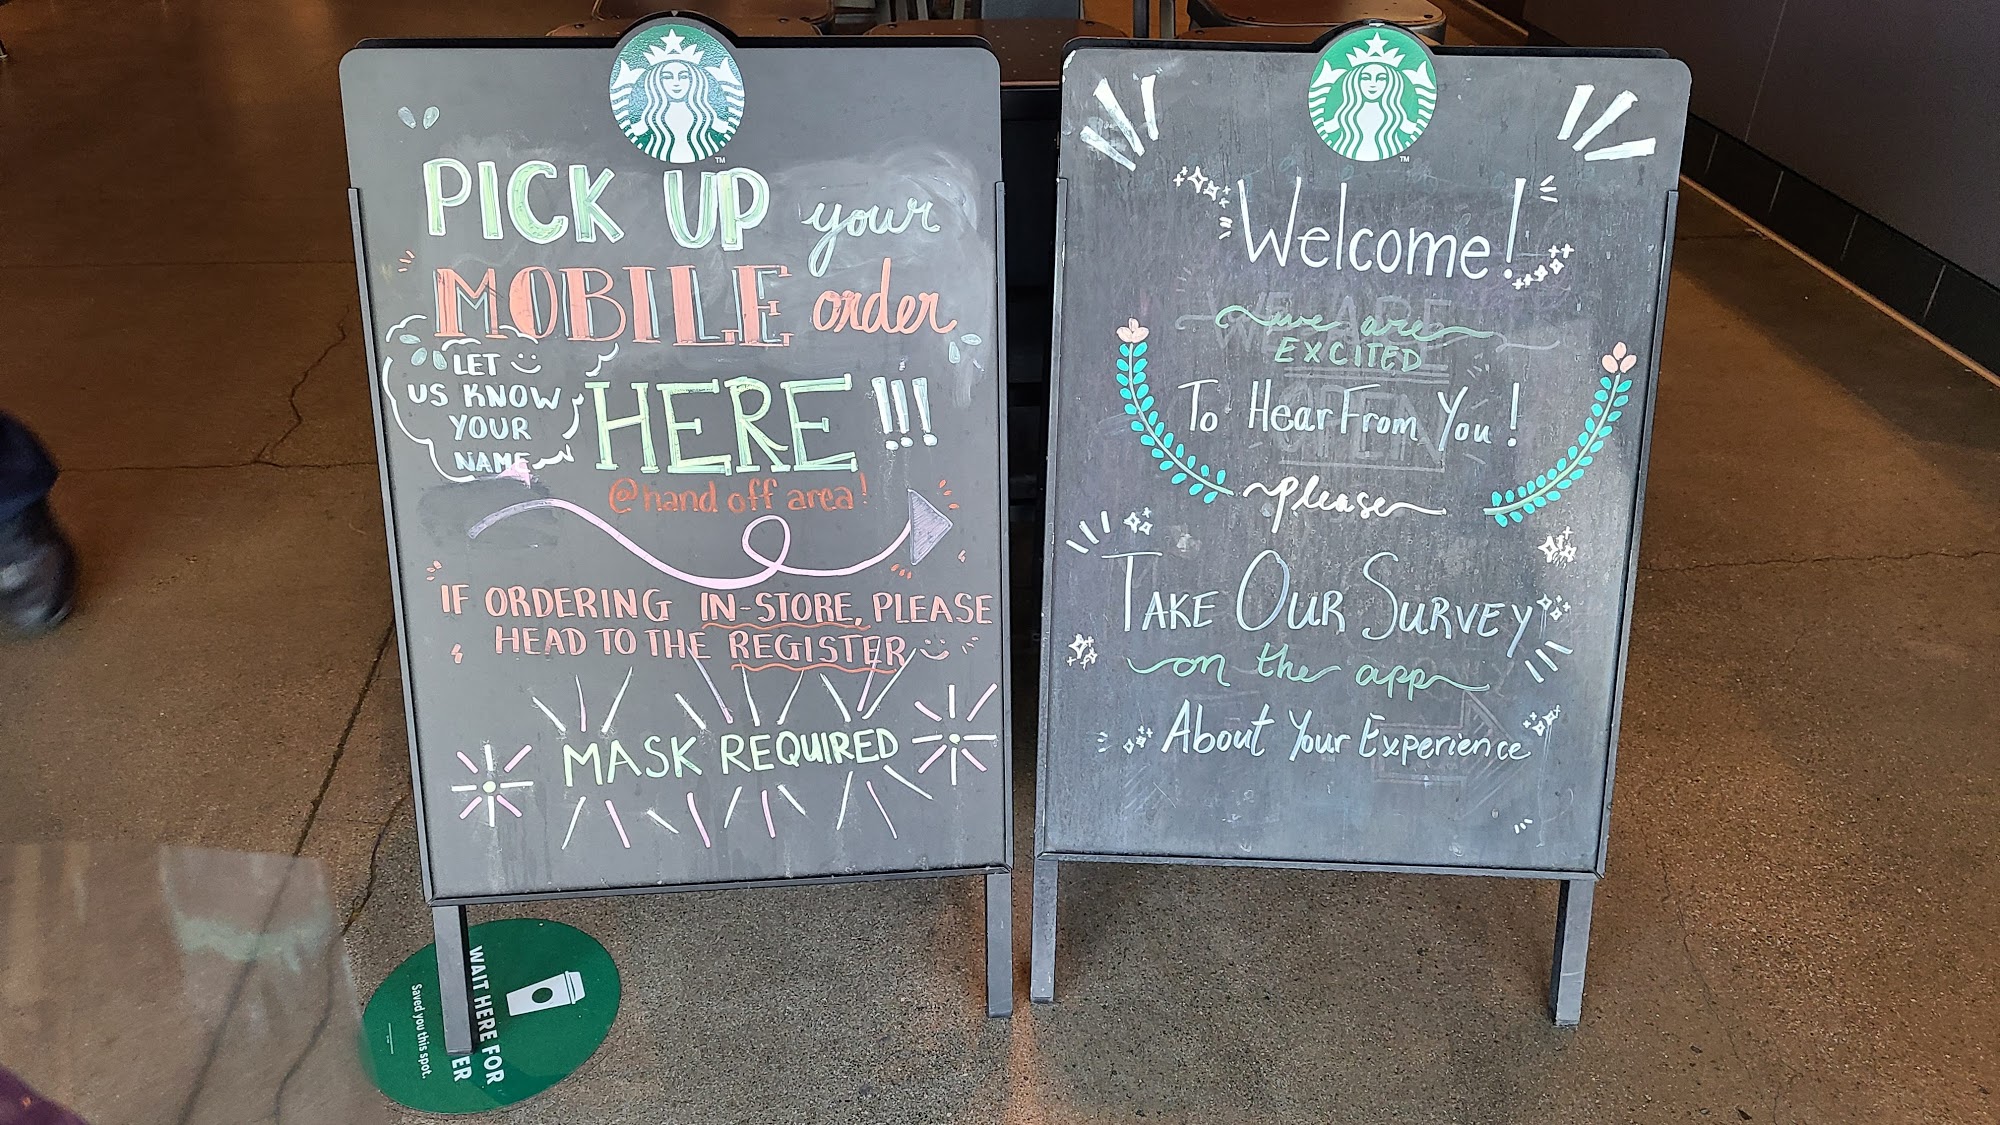 PICK UP your
MOBILE order
LET
US KNOW
YOUR
NAME
HERE!!!
@hand off area!
IF ORDERING IN-STORE, PLEASE
HEAD TO THE REGISTER
MASK REQUIRED
TM
WAIT HERE FOR
ER
Saved you this spot.
Welcome!
we are
EXCITED
To Hear From You!
please
TAKE OUR SURVEY
on the app
About Your Experience
TM
WE ARE
OPEN